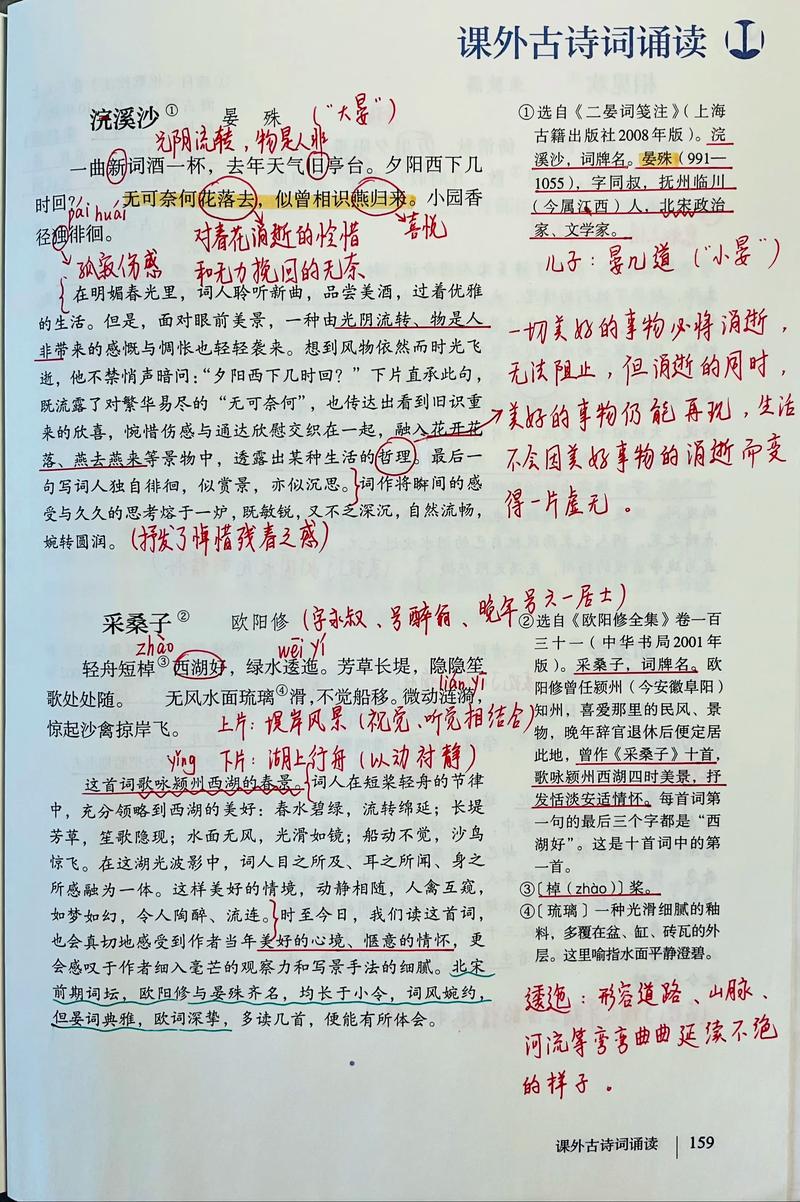 课外古诗词诵读
浣溪沙①
晏 殊 (“大晏”)
光阴流转，物是人非
一曲新词酒一杯，去年天气旧亭台。夕阳西下几
时回？ 无可奈何花落去，似曾相识燕归来。小园香
pái huái
径独徘徊。
对春花消逝的惋惜
喜悦
孤寂伤感
和无力挽回的无奈
在明媚春光里，词人聆听新曲，品尝美酒，过着优雅
的生活。但是，面对眼前美景，一种由光阴流转、物是人
非带来的感慨与惆怅也轻轻袭来。想到风物依然而时光飞
逝，他不禁悄声暗问：“夕阳西下几时回？”下片直承此句，
既流露了对繁华易尽的“无可奈何”，也传达出看到旧识重
来的欣喜，惋惜伤感与通达欣慰交织在一起，融入花开花
落、燕去燕来等景物中，透露出某种生活的哲理。最后一
句写词人独自徘徊，似赏景，亦似沉思。词作将瞬间的感
受与久久的思考熔于一炉，既敏锐，又不乏深沉，自然流畅，
婉转圆润。(抒发了悼惜残春之感)
①选自《二晏词笺注》（上海
古籍出版社2008年版）。浣
溪沙，词牌名。晏殊（991—
1055），字同叔，抚州临川
（今属江西）人，北宋政治
家、文学家。
儿子：晏几道（“小晏”）
一切美好的事物必将消逝，
无法阻止，但消逝的同时，
美好的事物仍能再现，生活
不会因美好事物的消逝而变
得一片虚无。
采桑子②
欧阳修 (字永叔、号醉翁、晚年号六一居士)
zhào
wēi yí
轻舟短棹③西湖好，绿水逶迤。芳草长堤，隐隐笙
lián yī
歌处处随。 无风水面琉璃④滑，不觉船移。微动涟漪，
惊起沙禽掠岸飞。
上片：堤岸风景(视觉、听觉相结合)
yǐng
下片：湖上行舟(以动衬静)
这首词歌咏颍州西湖的春景。词人在短桨轻舟的节律
中，充分领略到西湖的美好：春水碧绿，流转绵延；长堤
芳草，笙歌隐现；水面无风，光滑如镜；船动不觉，沙鸟
惊飞。在这湖光波影中，词人目之所及、耳之所闻、身之
所感融为一体。这样美好的情境，动静相随，人禽互窥，
如梦如幻，令人陶醉、流连。时至今日，我们读这首词，
也会真切地感受到作者当年美好的心境、惬意的情怀，更
会感叹于作者细入毫芒的观察力和写景手法的细腻。北宋
前期词坛，欧阳修与晏殊齐名，均长于小令，词风婉约，
但晏词典雅，欧词深挚，多读几首，便能有所体会。
②选自《欧阳修全集》卷一百
三十一（中华书局2001年
版）。采桑子，词牌名。欧
阳修曾任颍州（今安徽阜阳）
知州，喜爱那里的民风、景
物，晚年辞官退休后便定居
此地，曾作《采桑子》十首，
歌咏颍州西湖四时美景，抒
发恬淡安适情怀。每首词第
一句的最后三个字都是“西
湖好”。这是十首词中的第
一首。
③〔棹（zhào）〕桨。
④〔琉璃〕一种光滑细腻的釉
料，多覆在盆、缸、砖瓦的外
层。这里喻指水面平静澄碧。
逶迤：形容道路、山脉、
河流等弯弯曲曲延续不绝
的样子。
课外古诗词诵读 159